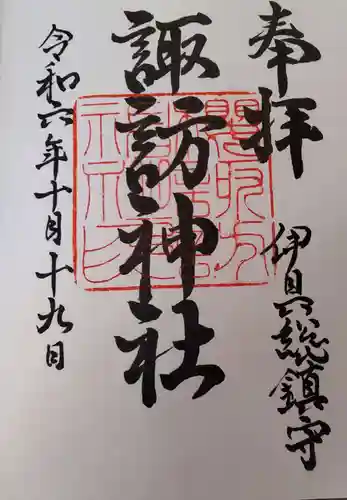 奉拝
伊具総鎮守
諏訪神社
令和六年十月十九日